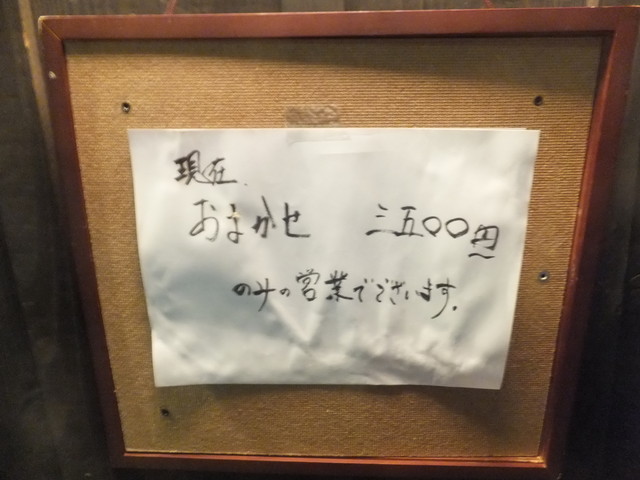 現在
おまかせ 三五〇〇円〜
のみの営業でございます。